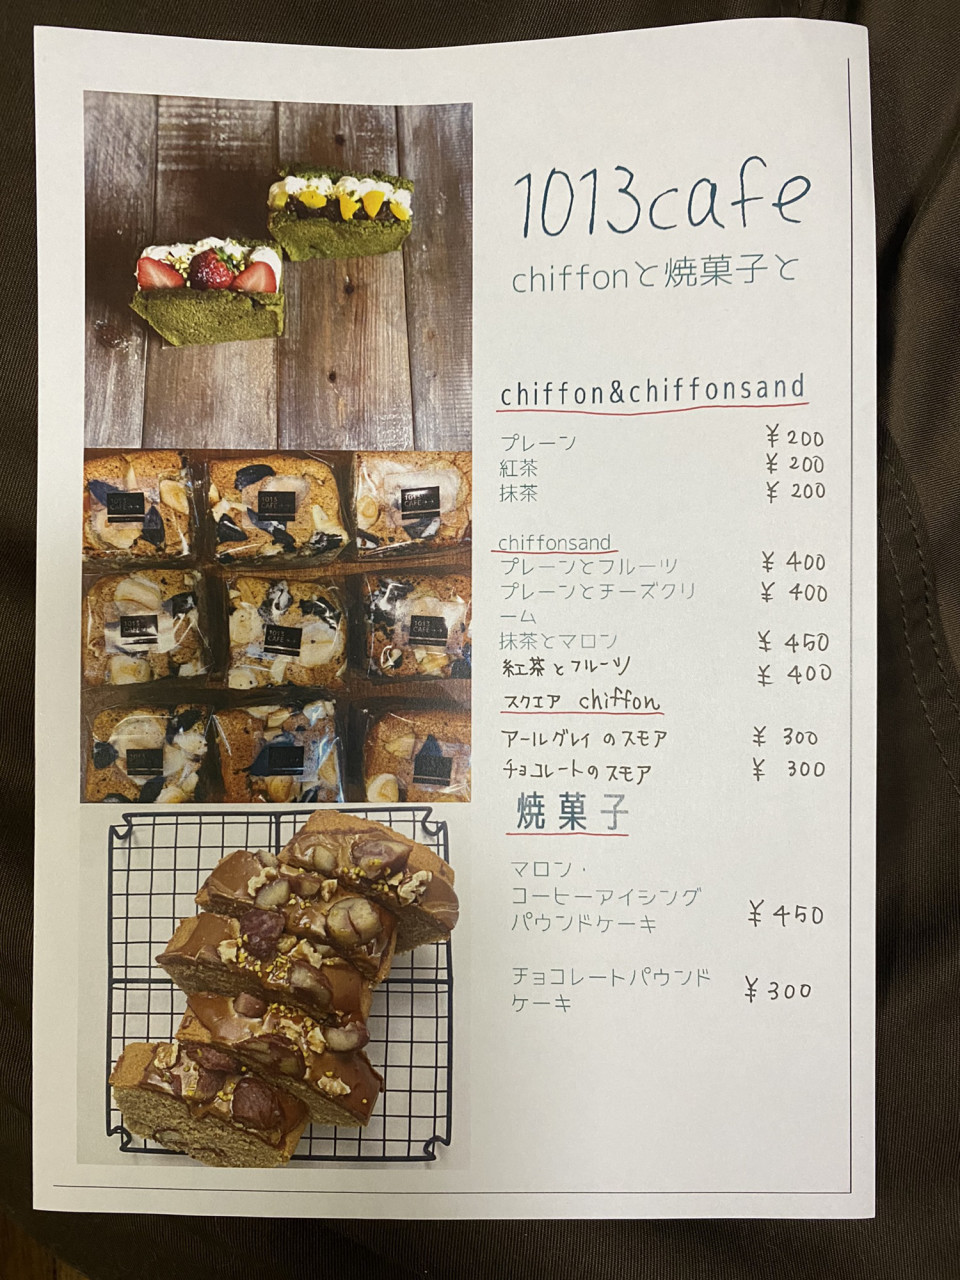 1013cafe
chiffonと焼菓子と
chiffon&chiffonsand
プレーン ¥200
紅茶 ¥200
抹茶 ¥200
chiffonsand
プレーンとフルーツ ¥400
プレーンとチーズクリ ¥400
ーム
抹茶とマロン ¥450
紅茶とフルーツ ¥400
スクエア chiffon
アールグレイのスモア ¥300
チョコレートのスモア ¥300
焼菓子
マロン・
コーヒーアイシング
パウンドケーキ ¥450
チョコレートパウンド
ケーキ ¥300
1013
CAFE
1013
CAFE
1013
CAFE
1013
CAFE
1013
CAFE
1013
CAFE
1013